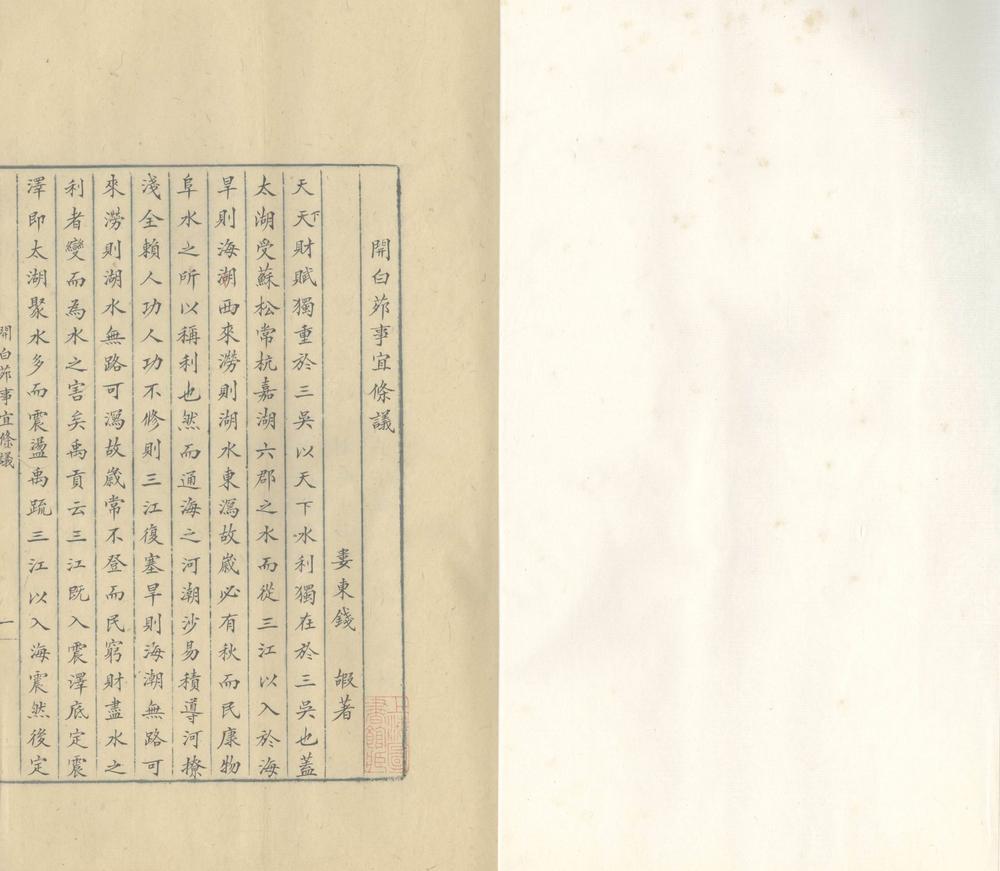 開白茆事宜條議
婁東錢 嘏著
天天下財賦獨重於三吳以天下水利獨在於三吳也蓋
太湖受蘇松常杭嘉湖六郡之水而從三江以入於海
旱則海湖西來澇則湖水東瀉故歲必有秋而民康物
阜水之所以稱利也然而通海之河潮沙易積導河撩
淺全賴人功人功不修則三江復塞旱則海潮無路可
來澇則湖水無路可瀉故歲常不登而民窮財盡水之
利者變而為水之害矣禹貢云三江既入震澤底定震
澤即太湖聚水多而震盪禹疏三江以入海震然後定
開白茆事宜條議
一
上海圖書館藏